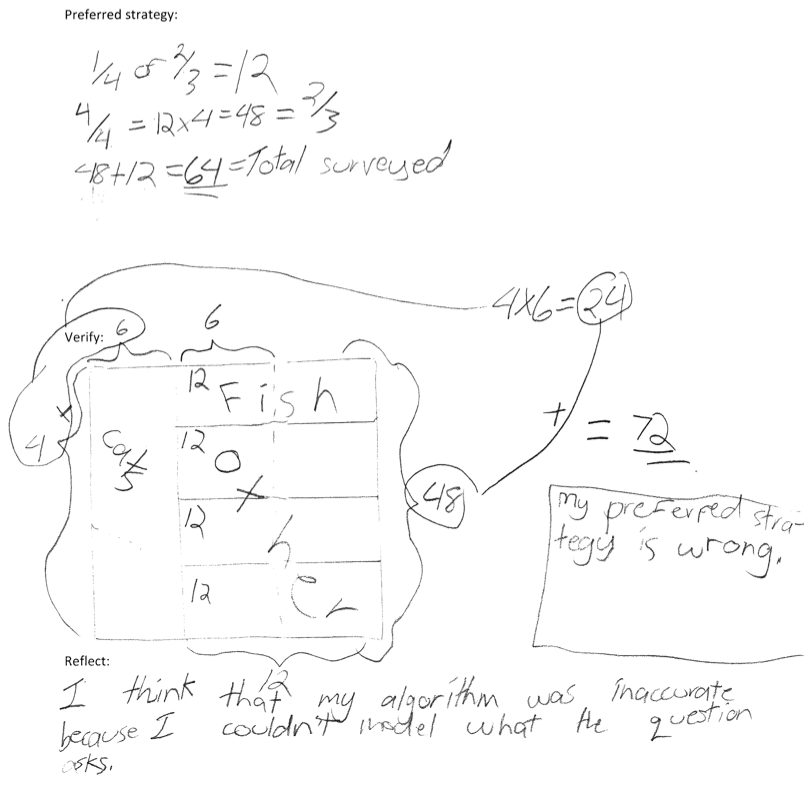 Preferred strategy:
1/4 of 2/3 = 12
4/4 = 12x4 = 48 = 2/3
48+12 = 64 = Total surveyed
4x6 = 24
Verify:
6
6
12 Fish
4 x
cats
12 O
t
12
h
12 er
48
+ = 72
12
My preferred stra-
tegy is wrong.
Reflect:
I think that my algorithm was inaccurate
because I couldn't model what the question
asks.